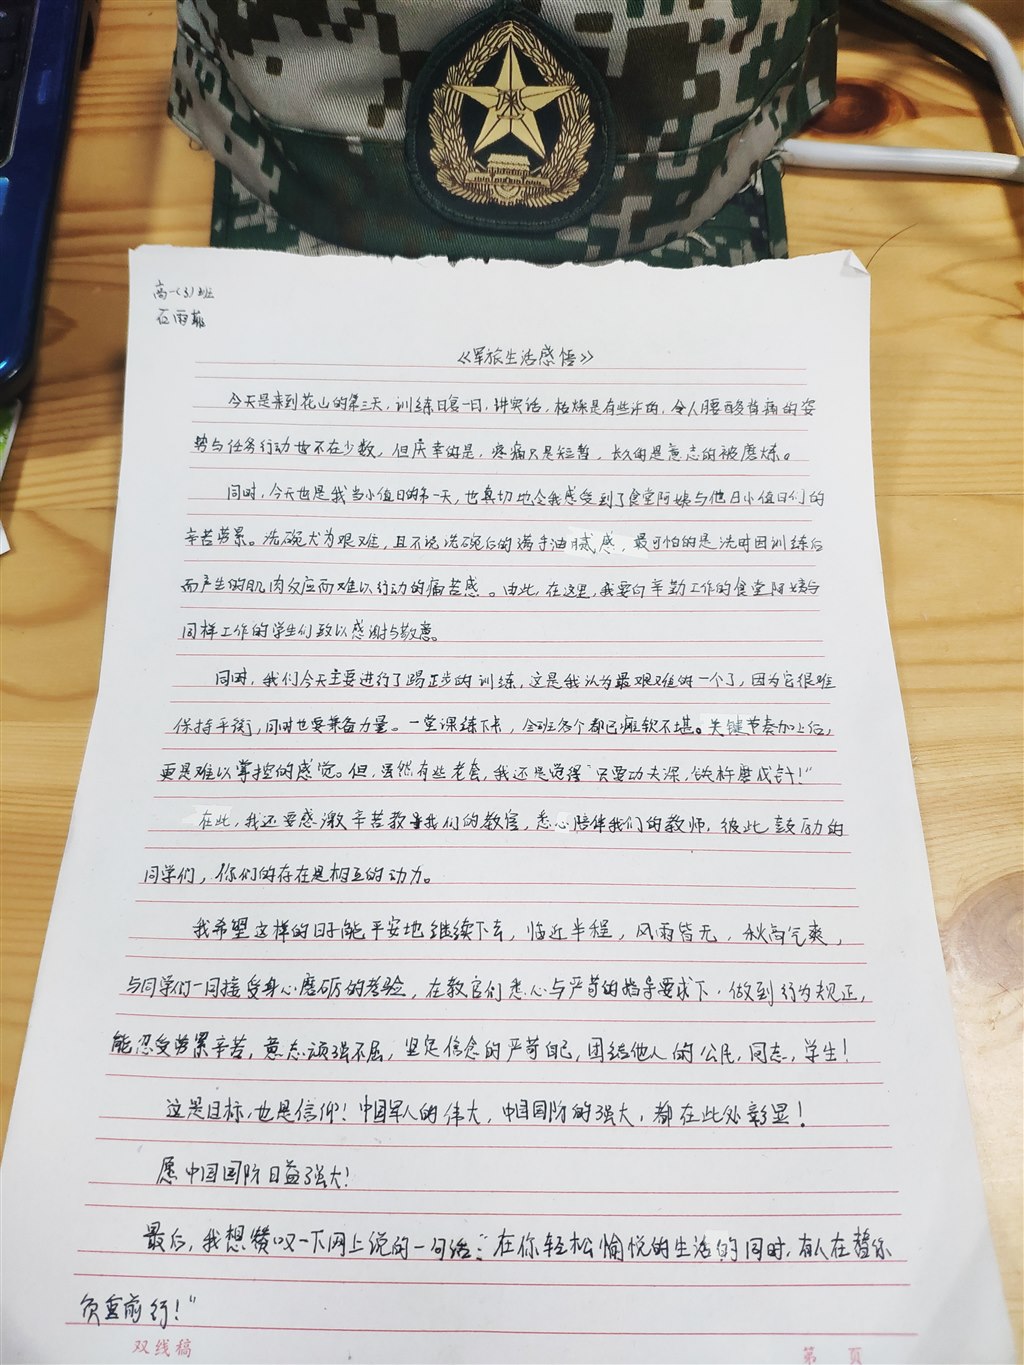 高一(3)班
石雨菲
《军旅生活感悟》
今天是来到花山的第三天，训练日复一日，讲实话，枯燥是有些许的，令人腰酸背痛的姿
势与任务行动也不在少数，但庆幸的是，疼痛只是短暂，长久的是意志的被磨炼。
同时，今天也是我当小值日的第一天，也真切地令我感受到了食堂阿姨与他日小值日们的
辛苦劳累。洗碗尤为艰难，且不说洗碗后的满手油腻感，最可怕的是洗时因训练后
而产生的肌肉反应而难以行动的痛苦感。由此，在这里，我要向辛勤工作的食堂阿姨与
同样工作的学生们致以感谢与敬意。
同时，我们今天主要进行了踢正步的训练，这是我认为最艰难的一个了，因为它很难
保持平衡，同时也要兼备力量。一堂课练下来，全班各个都已瘫软不堪。关键节奏加上后，
更是难以掌控的感觉。但，虽然有些老套，我还是觉得“只要功夫深，铁杵磨成针！”
在此，我还要感激辛苦教导我们的教官，悉心陪伴我们的教师，彼此鼓励的
同学们，你们的存在是相互的动力。
我希望这样的日子能平安地继续下去，临近半程，风雨皆无，秋高气爽，
与同学们一同接受身心磨砺的考验，在教官们悉心与严苛的指导要求下，做到行为规正，
能忍受劳累辛苦，意志顽强不屈，坚定信念的严苛自己，团结他人的公民，同志，学生！
这是目标，也是信仰！中国军人的伟大，中国国防的强大，都在此处彰显！
愿中国国防日益强大！
最后，我想赞叹一下网上说的一句话：“在你轻松愉悦的生活的同时，有人在替你
负重前行！”
双线稿
第 页